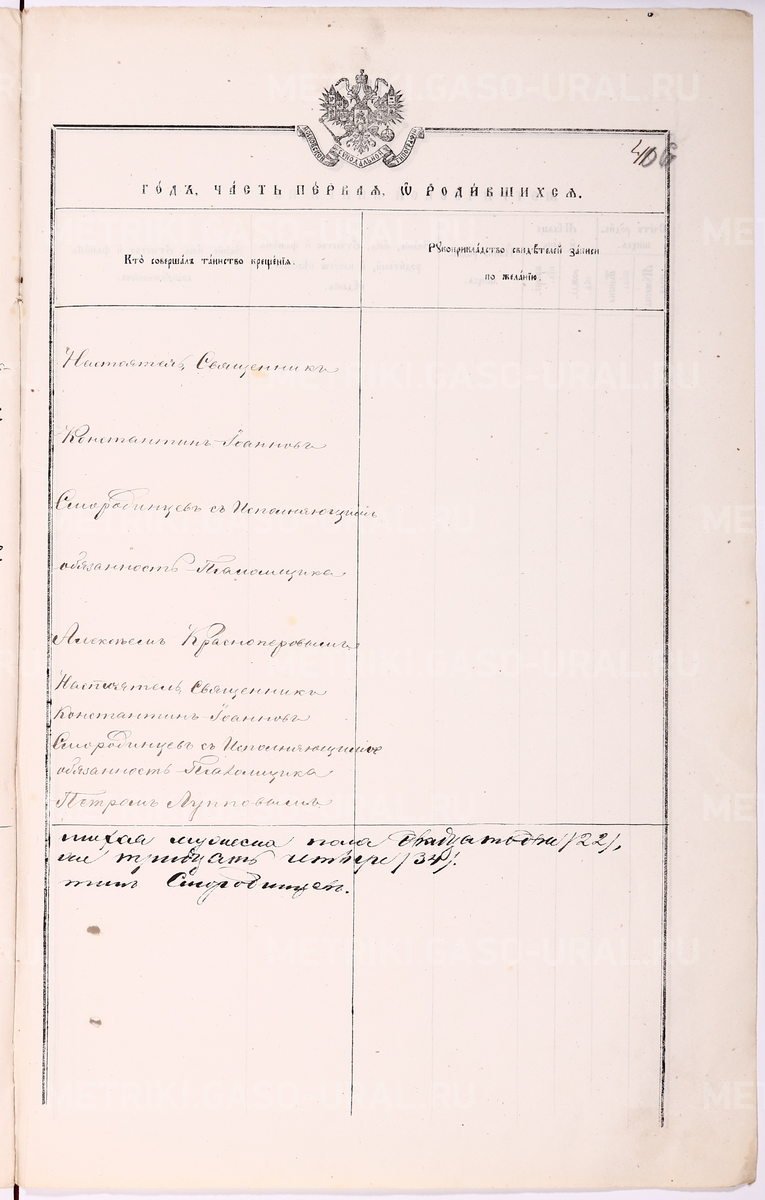 406
МОСКОВСКОЙ СѴНОДАЛЬНОЙ ТИПОГРАФІИ
ГО́ДЪ, ЧА́СТЬ ПЕ́РВАЯ, Ѡ҆ РОДИ́ВШИХСЯ.
Кто̀ соверша́лъ та́инство креще́нїя.
Рꙋкоприкла́дство свидѣ́телей за́писи
по жела́нїю.
Настоятель, Священникъ
Константинъ Іоанновъ
Смородинцевъ съ Исполняющимъ
обязанность Псаломщика
Алексѣемъ Красноперовымъ
Настоятель, Священникъ
Константинъ Іоанновъ
Смородинцевъ съ Исполняющимъ
обязанность Псаломщика
Петромъ Лупповымъ
мужеска пола двадцать два /22/,
тридцать четыре /34/.
Смородинцевъ.
METRIKI.GASO-URAL.RU